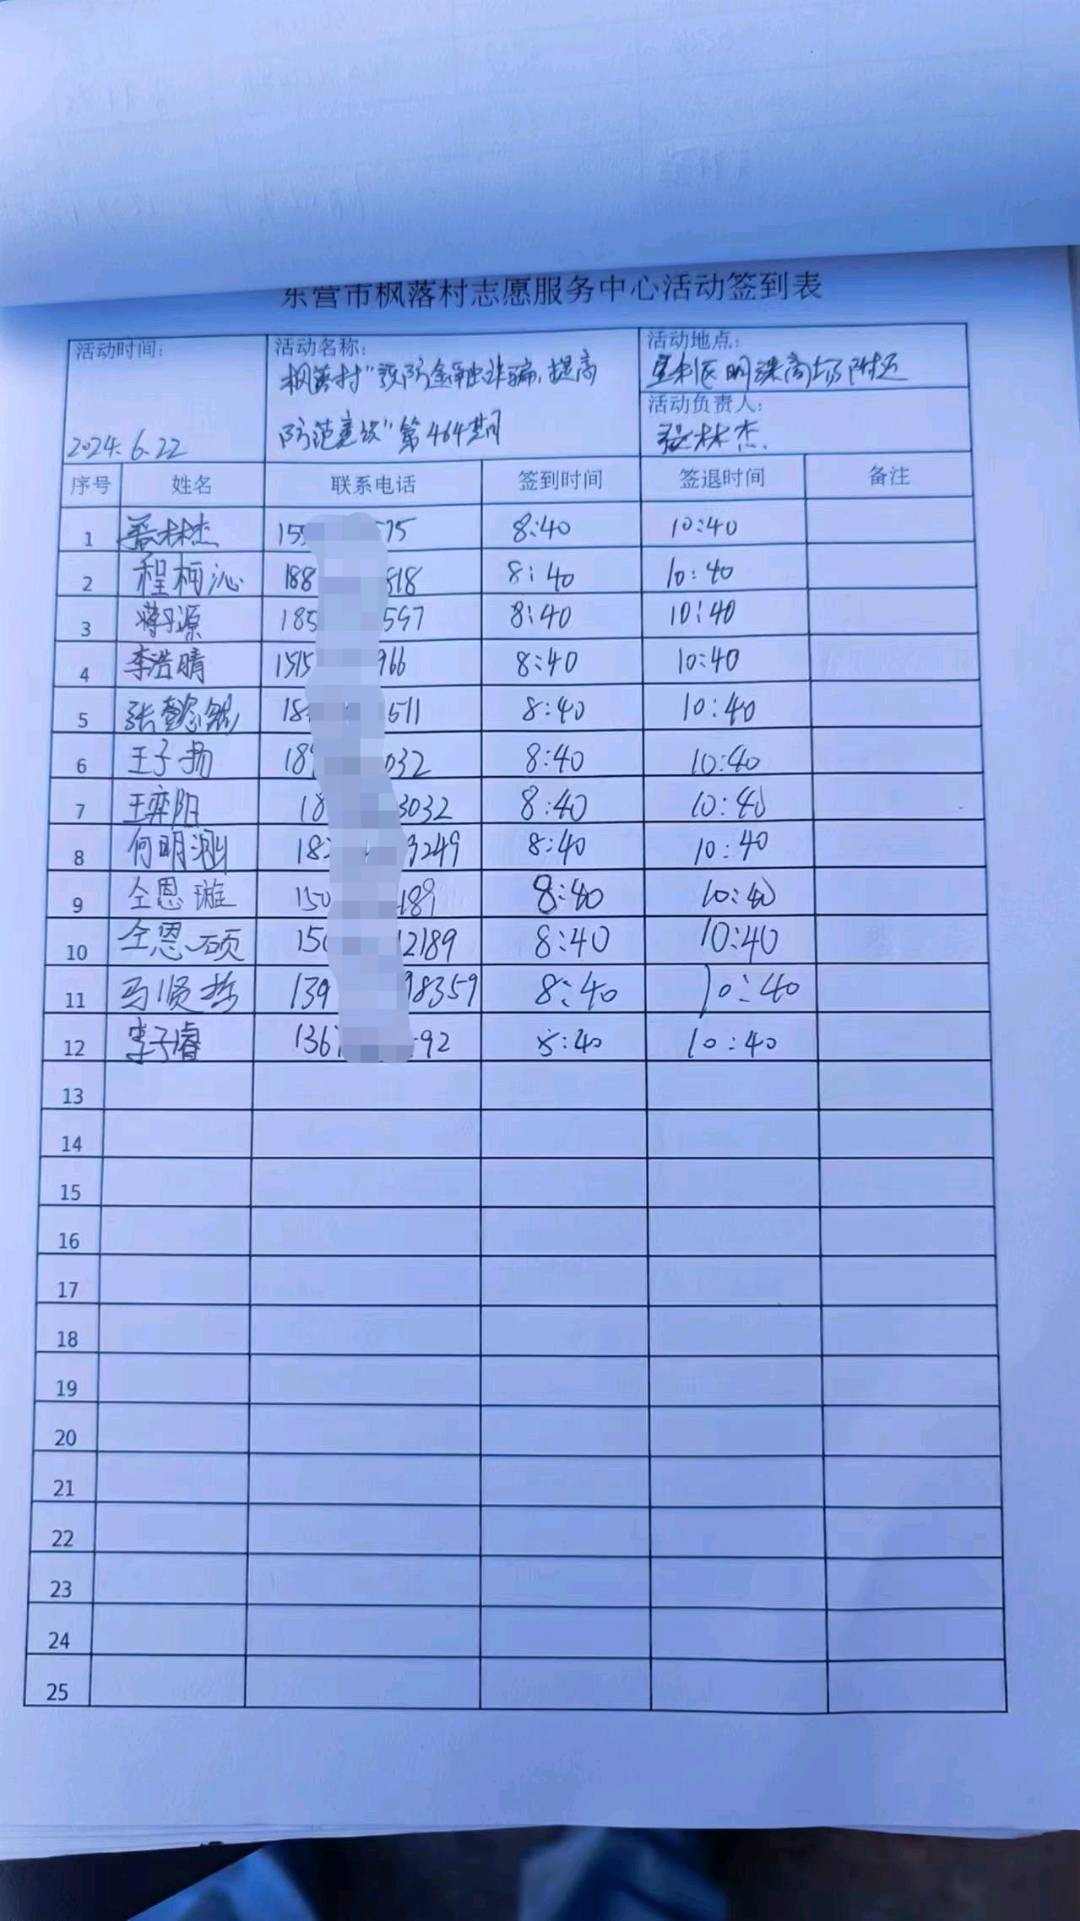 东营市枫落村志愿服务中心活动签到表
活动时间: 2024.6.22
活动名称: 枫落村“预防金融诈骗,提高
防范意识”第464期
活动地点: 垦利区明珠商场附近
活动负责人: 林杰
序号 姓名 联系电话 签到时间 签退时间 备注
1 林杰 15 75 8:40 10:40
2 程柯沁 188 818 8:40 10:40
3 蒋子源 185 597 8:40 10:40
4 李浩晴 1515 966 8:40 10:40
5 张懿 18 611 8:40 10:40
6 王子扬 189 032 8:40 10:40
7 王奕阳 18 3032 8:40 10:40
8 何明 182 3249 8:40 10:40
9 仝恩璇 150 189 8:40 10:40
10 仝恩硕 150 2189 8:40 10:40
11 马贤哲 139 98359 8:40 10:40
12 李子睿 136 92 8:40 10:40
13
14
15
16
17
18
19
20
21
22
23
24
25